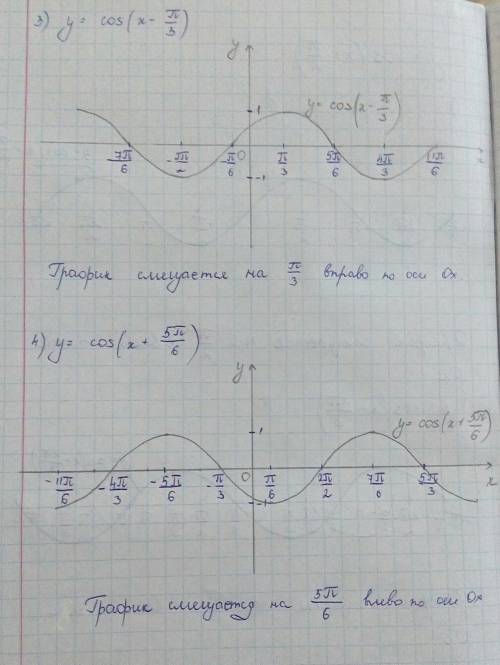 3) y = cos(x - π/3)
y
1
y = cos(x - π/3)
-7π/6 -π/6 0 π/3 5π/6 4π/3 11π/6 x
-1
График смещается на π/3 вправо по оси Ox
4) y = cos(x + 5π/6)
y
1
y = cos(x + 5π/6)
-11π/6 -4π/3 -5π/6 -π/3 0 π/6 2π/2 5π/3 x
-1
График смещается на 5π/6 влево по оси Ox